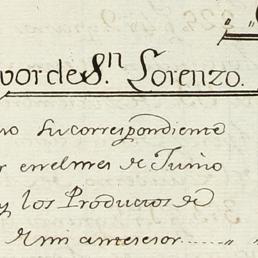 vor de S.n Lorenzo.
vo su correspondiente
r en el mes de Junio
y los Productos de
de mi antesesor